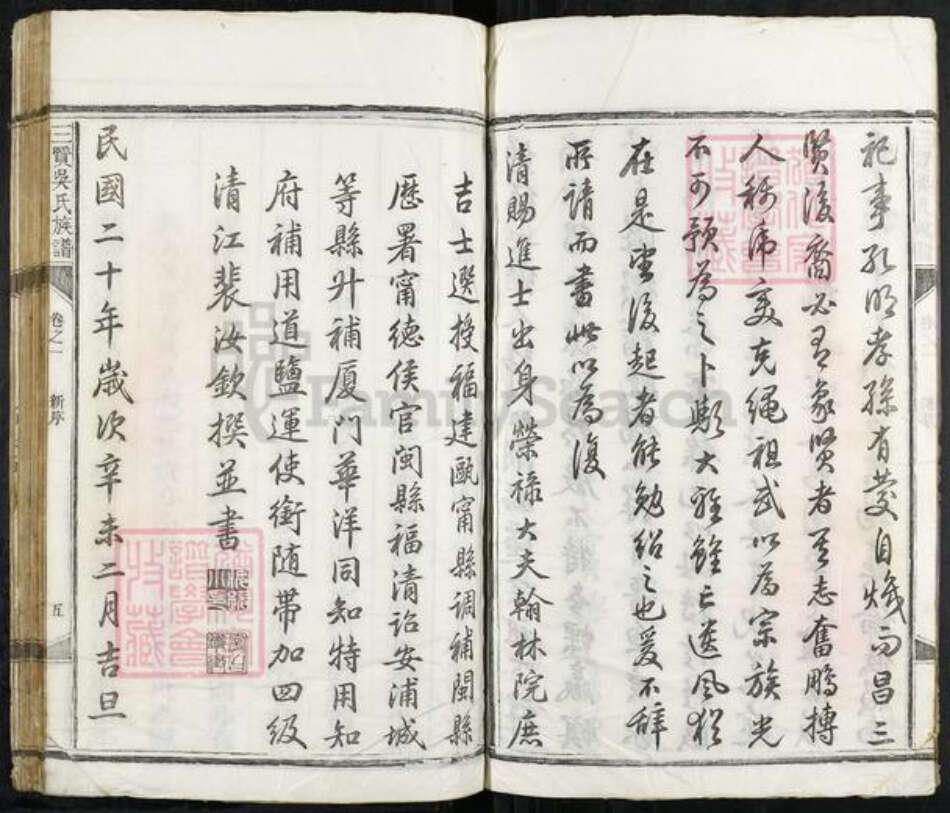 祀事孔明孝孫有慶自熾而昌三
賢後裔必有象賢者矢志奮鵬摶
人稱虎变克繩祖武以為宗族光
不可預為之卜歟大雅雖亡遺風猶
在是望後起者能勉紹之也爰不辞
所請而書此以為復
清賜進士出身榮祿大夫翰林院庶
吉士選授福建甌甯縣調補閩縣
歷署甯德侯官閩縣福清詔安浦城
等縣升補厦門華洋同知特用知
府補用道鹽運使銜隨帶加四級
清江裴汝欽撰並書
民國二十年歲次辛未二月吉旦
三賢吳氏族譜
卷之一
新序
五
譜學會
收藏
FamilySearch